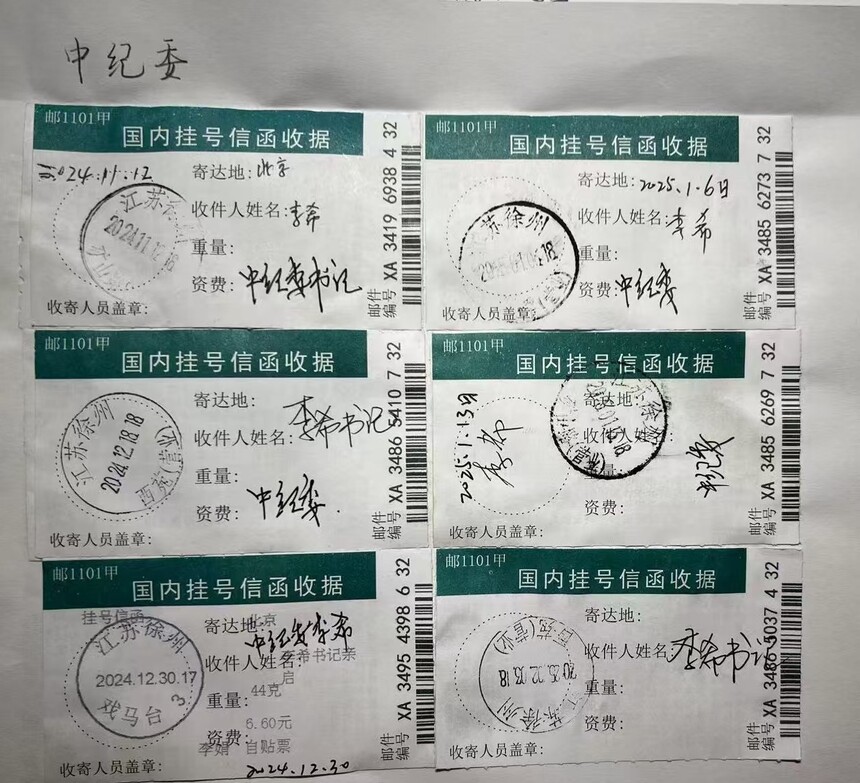 中纪委
邮1101甲
国内挂号信函收据
2024.11.12
寄达地:北京
收件人姓名:李希
重量:
资费:中纪委书记
收寄人员盖章:
江苏徐州
邮件编号 XA 3419 6938 4 32
邮1101甲
国内挂号信函收据
寄达地:2025.1.6日
收件人姓名:李希
重量:
资费:中纪委
收寄人员盖章:
苏徐州
邮件编号 XA 3485 6273 7 32
邮1101甲
国内挂号信函收据
寄达地:
收件人姓名:李希书记
重量:
资费:中纪委.
收寄人员盖章:
江苏徐州
2024.12.18.18
西苑(营业)
邮件编号 XA 3486 5410 7 32
邮1101甲
国内挂号信函收据
2025.1.13日
李希
寄达地:
收件人姓名:
重量:
资费:
中纪委
收寄人员盖章:
邮件编号 XA 3485 6269 7 32
邮1101甲
国内挂号信函收据
挂号信函
寄达地:北京
中纪委李希
收件人姓名:李希书记亲启
重量:44克
资费:5.60元
李娟 自贴票
收寄人员盖章:
2024.12.30
江苏徐州
2024.12.30.17
戏马台 3
邮件编号 XA 3495 4398 6 32
邮1101甲
国内挂号信函收据
寄达地:
收件人姓名:李希书记
重量:
资费:
收寄人员盖章:
西苑(营业)
江苏徐州
邮件编号 XA 3486 5037 4 32